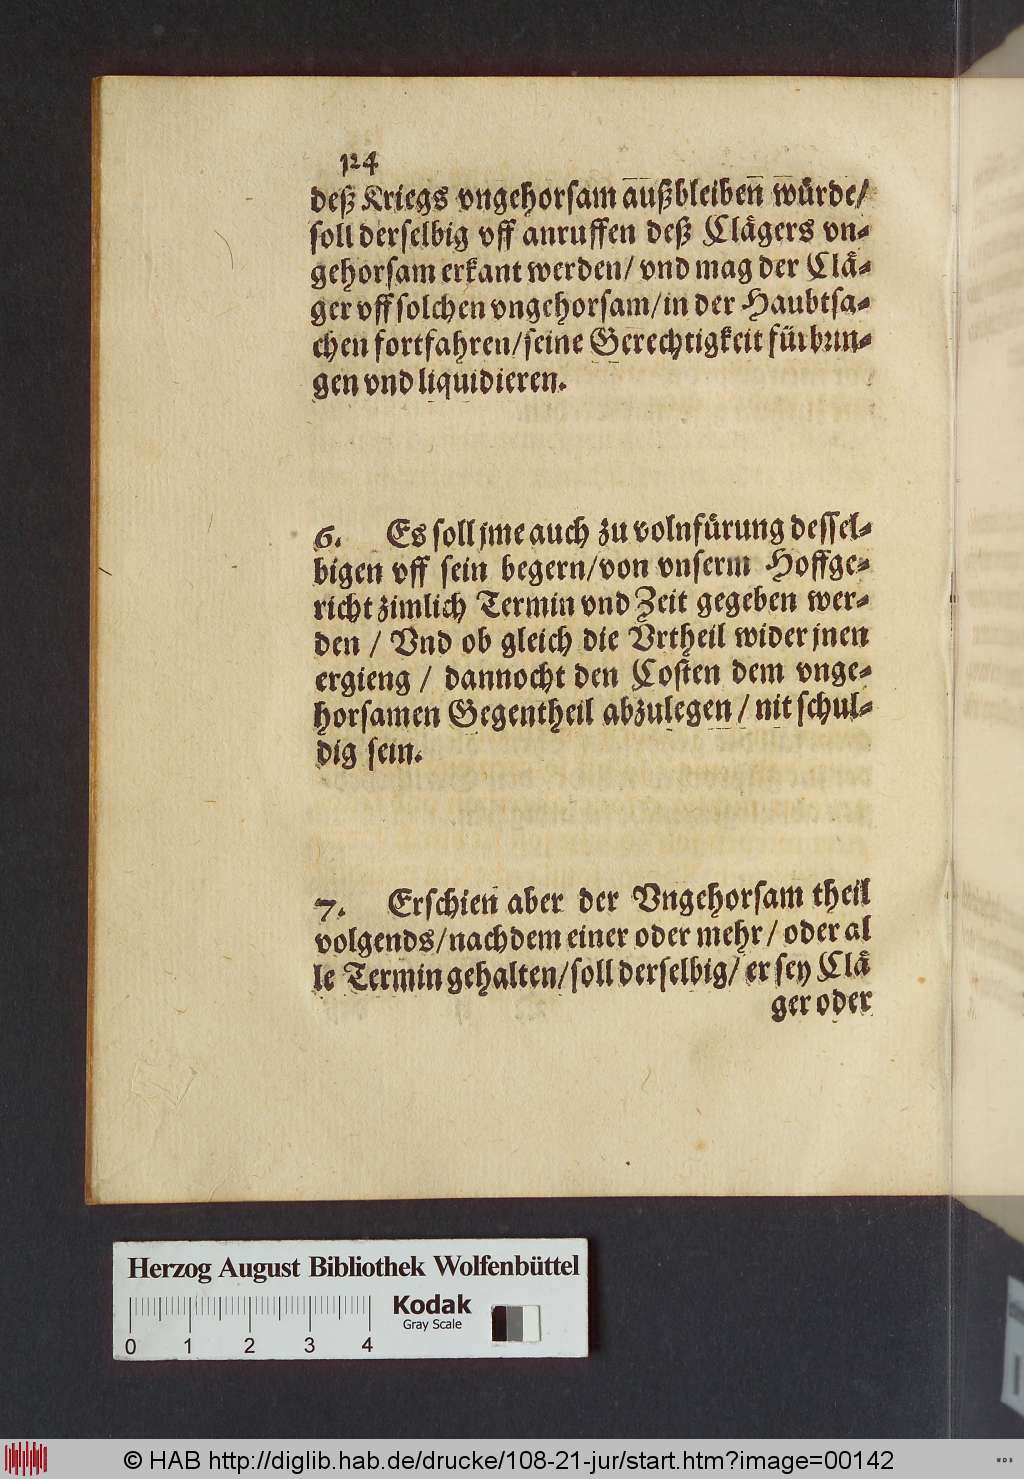 124
deß Kriegs vngehorsam außbleiben würde/
soll derselbig vff anruffen deß Clägers vn-
gehorsam erkant werden/ vnd mag der Clä-
ger vff solchen vngehorsam/in der Haubtsa-
chen fortfahren/seine Gerechtigkeit fürbrin-
gen vnd liquidieren.
6. Es soll jme auch zu volnfürung dessel-
bigen vff sein begern/von vnserm Hoffge-
richt zimlich Termin vnd Zeit gegeben wer-
den / Vnd ob gleich die Vrtheil wider jnen
ergieng / dannocht den Costen dem vnge-
horsamen Gegentheil abzulegen / nit schul-
dig sein.
7. Erschien aber der Vngehorsam theil
volgends/nachdem einer oder mehr/ oder al
le Termin gehalten/soll derselbig/ er sey Clä
ger oder
Herzog August Bibliothek Wolfenbüttel
Kodak
Gray Scale
0 1 2 3 4
© HAB http://diglib.hab.de/drucke/108-21-jur/start.htm?image=00142